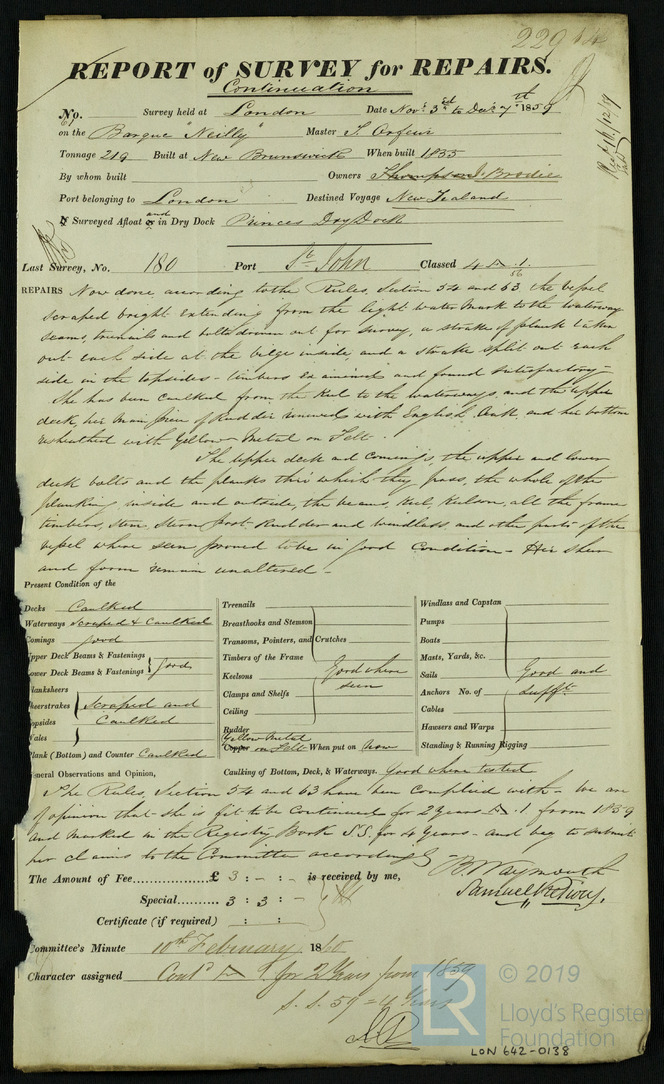 229
REPORT of SURVEY for REPAIRS.
Continuation
No. Survey held at London Date Novr. 3rd to Decr 7th 1859
on the Barque "Neilly" Master Orfeur
Tonnage 219 Built at New Brunswick When built 1855
By whom built Owners Thompson J. Brodie
Port belonging to London Destined Voyage New Zealand
Surveyed Afloat and in Dry Dock Princes Dry Dock
Last Survey, No. 180 Port St. John Classed 4 A .1.
REPAIRS Now done according to the Rules, Section 54 and 63, the vessel
scraped bright extending from the light water mark to the waterway
seams, treenails and bolts driven out for survey, a strake of plank taken
out each side at the bilge inside, and a strake split out each
side in the topsides - timbers examined and found satisfactory -
She has been caulked from the keel to the waterways, and the upper
deck, her main piece of Rudder renewed with English Oak, and her bottom
resheathed with Yellow Metal on Felt.
The upper deck and comings, the upper and lower
deck bolts and the planks thro' which they pass, the whole of the
planking inside and outside, the beams, keel, kelson, all the frame
timbers, stem, stern post, Rudder and windlass, and other parts of the
vessel where seen proved to be in good condition - Her sheer
and form remain unaltered -
Present Condition of the
Decks Caulked
Waterways Scraped & Caulked
Comings Good
Upper Deck Beams & Fastenings
Lower Deck Beams & Fastenings Good
Planksheers
Sheerstrakes Scraped and
Topsides Caulked
Wales
Plank (Bottom) and Counter Caulked
Treenails
Breasthooks and Stemson
Transoms, Pointers, and Crutches
Timbers of the Frame
Keelsons Good where
Clamps and Shelfs seen
Ceiling
Rudder
Yellow Metal
Copper on Felt When put on Now
Windlass and Capstan
Pumps
Boats
Masts, Yards, &c.
Sails Good and
Anchors No. of Sufft.
Cables
Hawsers and Warps
Standing & Running Rigging
General Observations and Opinion, Caulking of Bottom, Deck, & Waterways. Good where tested
The Rules, Section 54 and 63 have been complied with - We are
of opinion that she is fit to be Continued for 2 Years A .1 from 1859
and marked in the Registry Book S.S. for 4 Years - and beg to submit
her claims to the Committee accordingly
B. Waymouth
Samuel
The Amount of Fee £ 3 : - : - is received by me,
Special 3 : 3 : -
Certificate (if required) : :
Committee's Minute 10th February 1860
Character assigned Contd A 1 for 2 Years from 1859
S.S. 59 = 4 Years
LR
© 2019
Lloyd's Register
Foundation
LON 642-0138